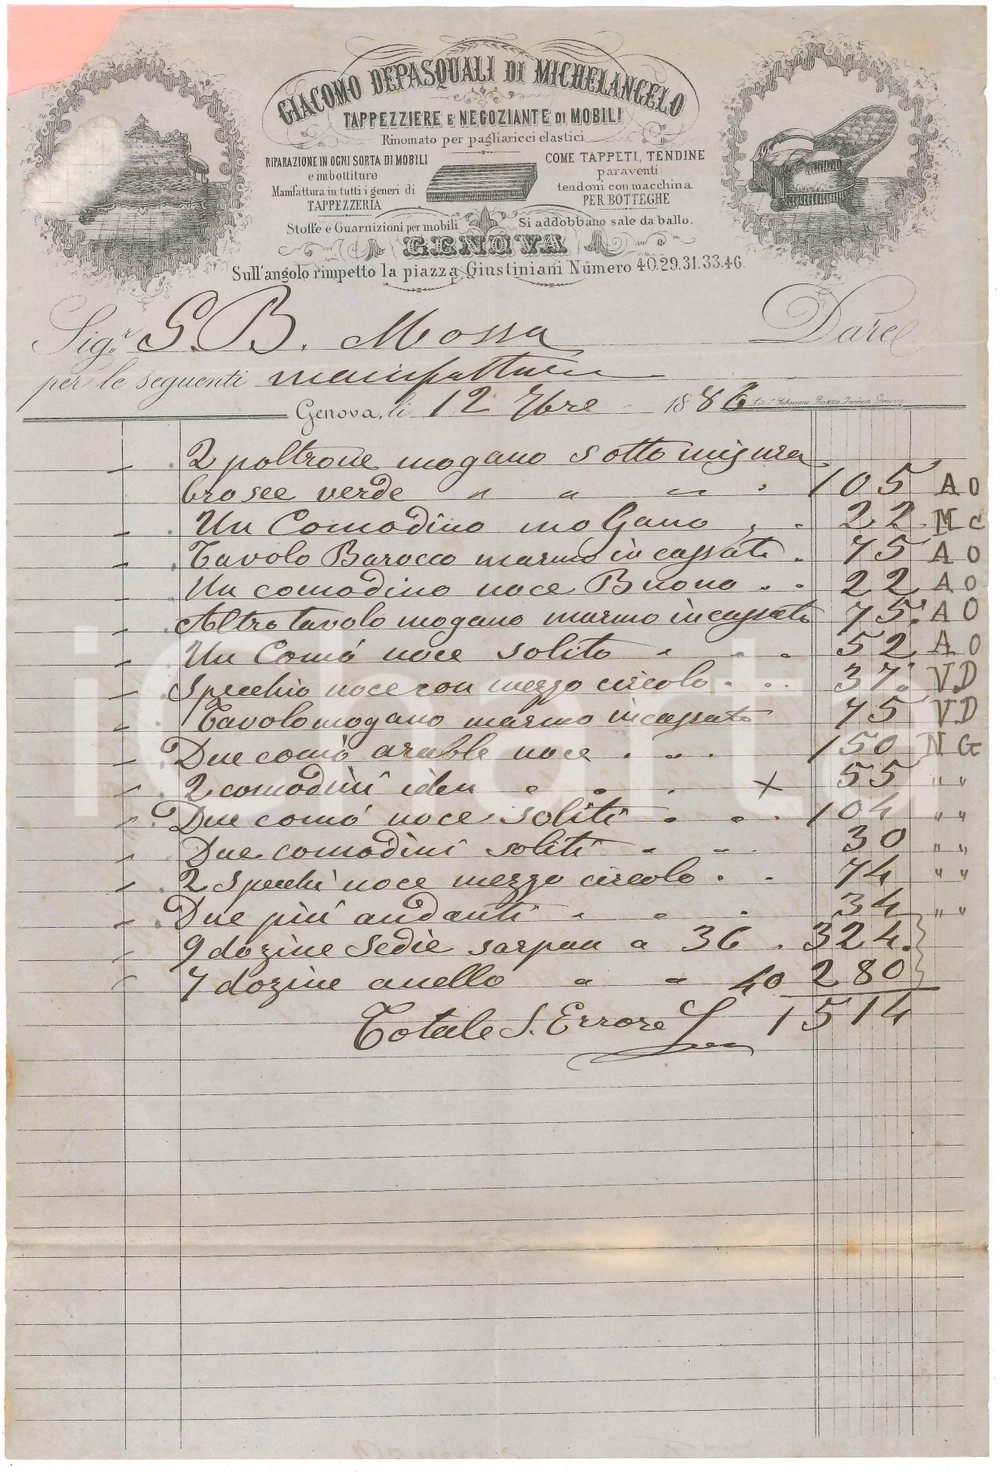 GIACOMO DEPASQUALI DI MICHELANGELO
TAPPEZZIERE E NEGOZIANTE DI MOBILI
Rinomato per pagliaricci elastici
RIPARAZIONE IN OGNI SORTA DI MOBILI
e imbottiture
Manifattura in tutti i generi di
TAPPEZZERIA
COME TAPPETI, TENDINE
paraventi
tendoni con macchina
PER BOTTEGHE
Stoffe e Guarnizioni per mobili
Si addobbano sale da ballo.
GENOVA
Sull'angolo rimpetto la piazza Giustiniani Número 40.29.31.33.46.
Sigr. G. B. Mossa Dare
per le seguenti manifatture
Genova, li 12 7bre 1886
2 poltrone mogano sotto misura
brosee verde " " " 105 A O
Un Comodino mogano 22 M c
Tavolo Barocco marmo incassato 75 A O
Un comodino noce Buono 22 A O
Altro tavolo mogano marmo incassato 75 A O
Un Comó noce solito 52 A O
Specchio noce con mezzo circolo 37 V.D
Tavolo mogano marmo incassato 75 V.D
Due comó noce 150 N G
2 comodini idem x 55 " "
Due comó noce soliti 104 " "
Due comodini soliti 30 " "
2 Specchi noce mezzo circolo 74 " "
Due piú andanti 34 " "
9 dozine Sedie a 36 324
7 dozine anello " " 40 280
Totale S. Errore 1514